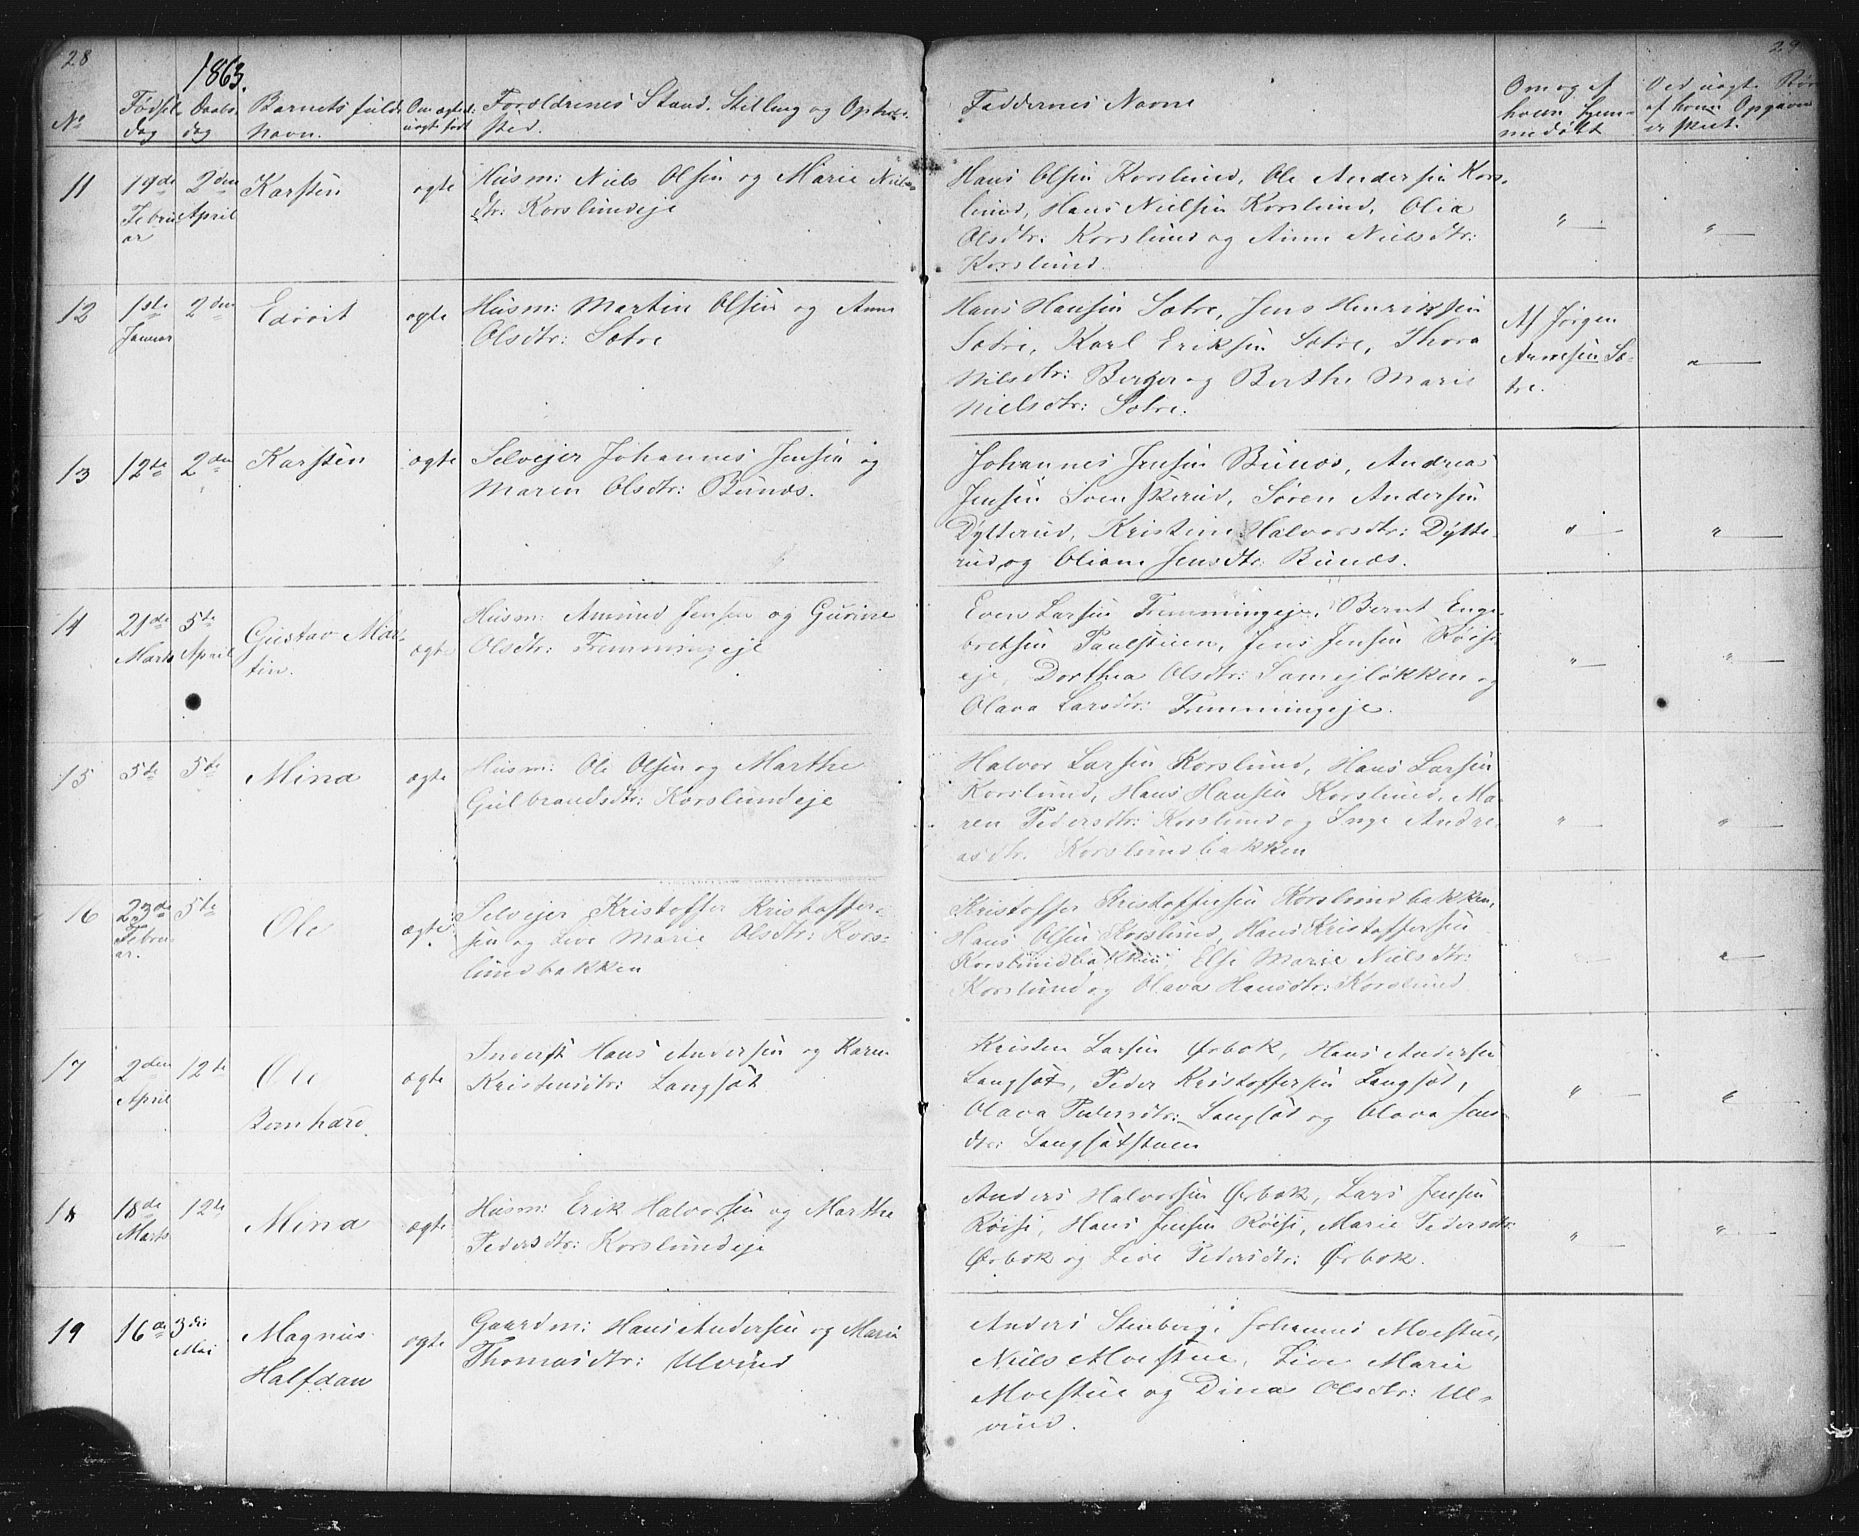 28
29
1863.
No
Fødsels
dag
Daabs
dag
Barnets fulde
Navn.
Om ægte el.
uægte født
Forældrenes Stand, Stilling og Opholds
sted.
Faddernes Navne
Om og af
hvem hjem-
medøbt
Ved uægte Bør
af hvem Opgaven
er skeet.
11
19de
Febru
ar
2den
April
Karsten
ægte
Husm: Niels Olsen og Marie Niels-
dtr: Korslundeje
Hans Olsen Korslund, Ole Andersen Kors-
lund, Hans Nielsen Korslund, Olia
Olsdtr. Korslund og Anne Nielsdtr:
Korslund.
" —
" —
12
1ste
Januar
2den
Edvart
ægte
Husm: Martin Olsen og Anne
Olsdtr: Sætre
Hans Hansen Sætre, Jens Henriksen
Sætre, Karl Eriksen Sætre, Thora
Nilsdtr: Berger og Berthe Marie
Nielsdtr: Sætre.
Af Jørgen
Arnesen Sæ-
tre.
" —
13
12te
2den
Karsten
ægte
Selvejer Johannes Jensen og
Maren Olsdtr: Bunæs.
Johannes Jensen Bunæs, Andreas
Jensen Svenskerud, Søren Andersen
Dytterud, Kristine Halvorsdtr: Dytte-
rud, og Oliane Jensdtr: Bunæs.
" —
" —
14
21de
Marts
5te
April
Gustav Mar-
tin.
ægte
Husm: Amund Jensen og Gurine
Olsdtr: Fremmingeje
Even Larsen Fremmingeje, Bernt Enge-
bretsen Paulstuen, Jens Jensen Røise
eje, Dorthea Olsdtr: Samejløkken og
Olava Larsdtr: Fremmingeje.
" —
" —
15
5te
5te
Mina
ægte
Husm: Ole Olsen og Marthe
Gulbrandsdtr: Korslundeje
Halvor Larsen Korslund, Hans Larsen
Korslund, Hans Hansen Korslund, Ma-
ren Pedersdtr: Korslund og Inge Andre-
asdtr. Korslundbakken
" —
" —
16
23de
Febru-
ar.
5te
Ole
ægte
Selvejer Kristoffer Kristoffer-
sen og Live Marie Olsdtr: Kors-
lundbakken
Kristoffer Kristoffersen Korslundbakken,
Hans Olsen Korslund, Hans Kristoffersen
Korslundbakken, Else Marie Nielsdtr:
Korslund og Olava Hansdtr: Korslund
" —
" —
17
2den
April
12te
Ole
Bernhard
ægte
Inderst Hans Andersen og Karen
Kristensdtr: Langsæt
Kristen Larsen Ørbæk, Hans Andersen
Langsæt, Peder Kristoffersen Langsæt,
Olava Pedersdtr: Langsæt og Olava Jens
dtr: Langsætstuen
" —
" —
18
18de
Marts
12te
Mina
ægte
Husm: Erik Halvorsen og Marthe
Pedersdtr: Korslundeje
Anders Halvorsen Ørbæk, Lars Jensen
Røise, Hans Jensen Røise, Marie Pedersdtr:
Ørbæk og Live Pedersdtr: Ørbæk.
" —
" —
19
16de
3die
Mai
Magnus
Halfdan
ægte
Gaardm: Hans Andersen og Marie
Thomasdtr: Ulvund
Anders Stenberg, Johannes Moestue,
Niels Moestue, Live Marie
Moestue og Dina Olsdtr: Ul-
vund.